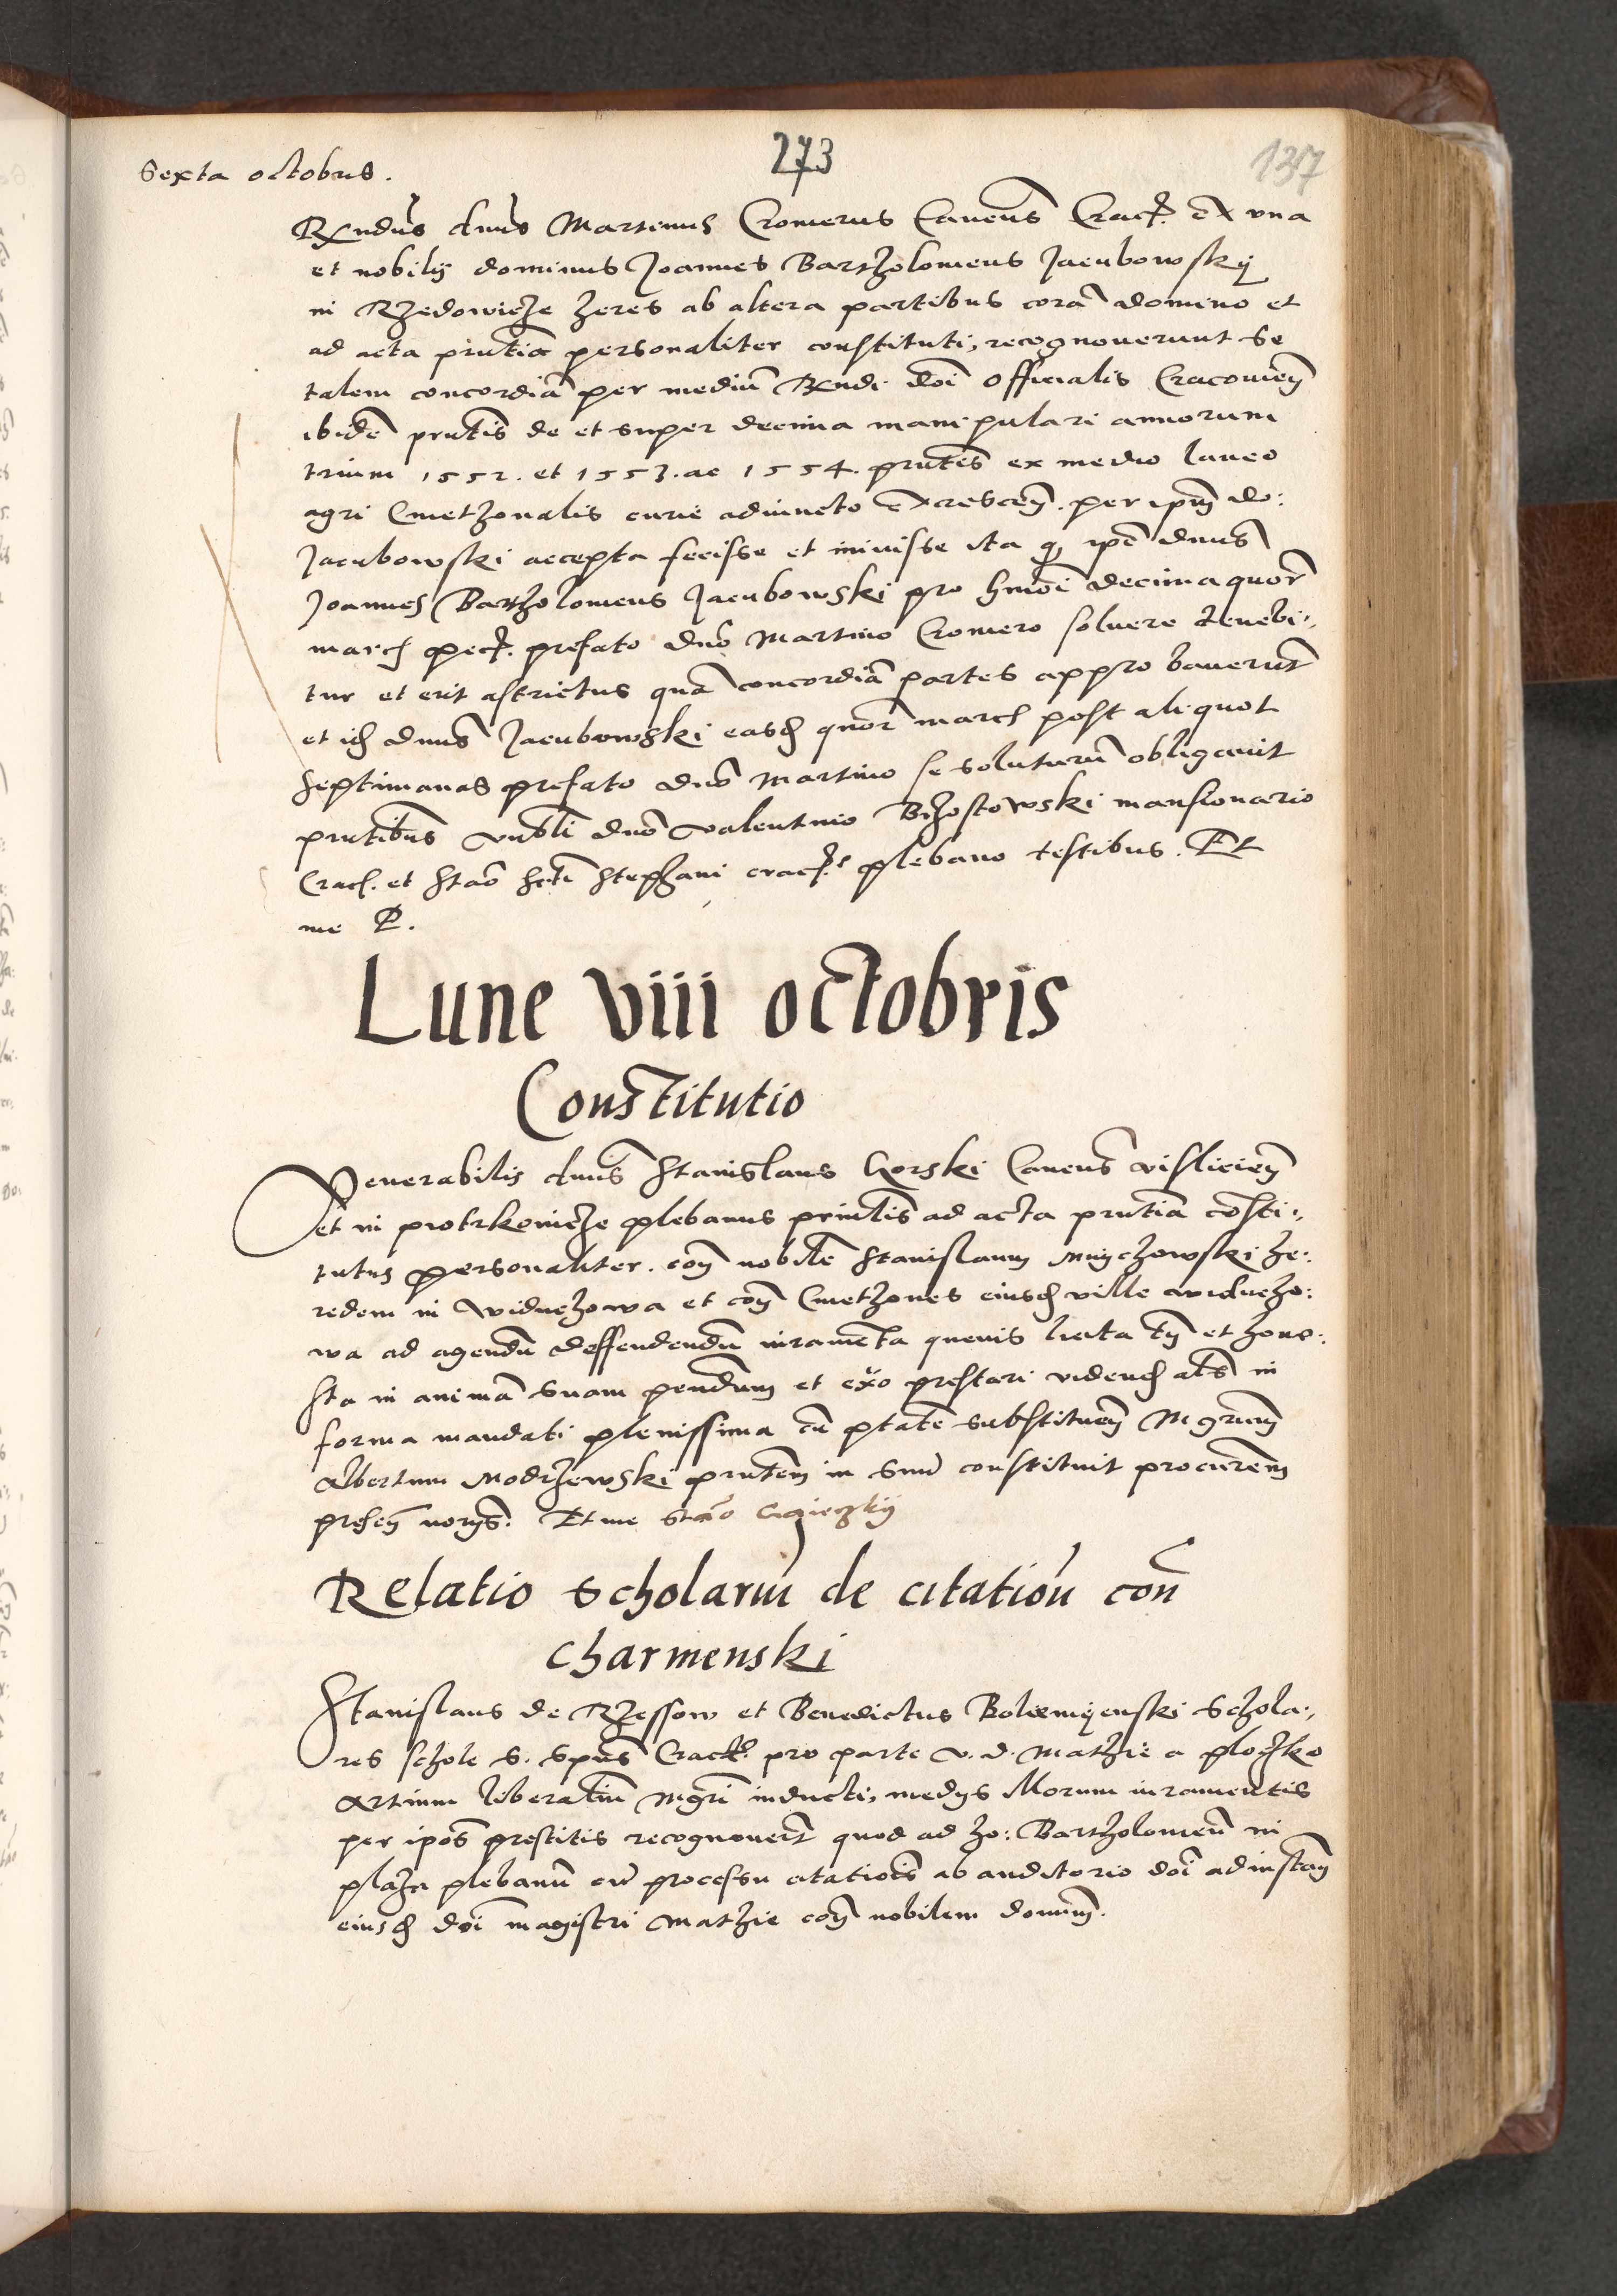 273
137
Sexta octobris.
Rndus dnus Martinus Cromerus Cancus Crac. ex una
et nobilis dominus Joannes Bartholomeus Jacubowsky
in Rzedowicze heres ab altera partibus corã domino et
ad acta prntia personaliter constituti, recognouerunt se
talem concordiã per mediũ Rndi dni Officialis Cracouieñ
ibidẽ prntis de et super decima manipulari annorum
trium 1552. et 1553. ac 1554. prntis ex medio laneo
agri Cmethonalis curie adiuncto excresceñ. per ipm do:
Jacubowski accepta fecisse et iniuisse ita q ipe dnus
Joannes Bartholomeus Jacubowski pro hmoi decima quor
march pec. prefato dno Martino Cromero soluere tenebi-
tur et erit astrictus quã concordiã partes approbauerũt
et id dnus Jacubowski easd quor march post aliquot
septimanas prefato dno Martino se soluturũ obligauit
prntibus vnbli dno Valentino Brzostowski mansionario
Crac. et Stao scti Stephani crac. plebano testibus. Et
me P.
Lune viii octobris
Constitutio
Venerabilis dnus Stanislaus Gorski Cancus vislicieñ
et in piotrkowicze plebanus prntis ad acta prntia cõsti-
tutus personaliter. coñ nobilẽ Stanislaum Myschowski he:
redem in Widuchowa et coñ Cmethones eiusd ville widucho:
wa ad agendũ deffendendũ iuramẽta queuis licita tñ et hone:
sta in animã suam prestari vidend als in
forma mandati plenissima cũ ptate substitueñ Mgrum
Albertum Modrzewski prntem in suũ constituit procurem
preseñ Et me Stao
Relatio Scholariũ de citatioñ coñ
Charmenski
Stanislaus de Rzessow et Benedictus Schola-
res schole S. Spus Crac. pro parte v. d. Mathie a ploczko
Artium liberaliũ Mgri inducti, medys illorum iuramentis
per ipos prestitis recognouerũt quod ad ho: Bartholomeũ in
plaza plebanũ cũ processu citatiois ab auditorio doi ad instañ
eiusd doi magistri Mathie coñ nobilem donum.